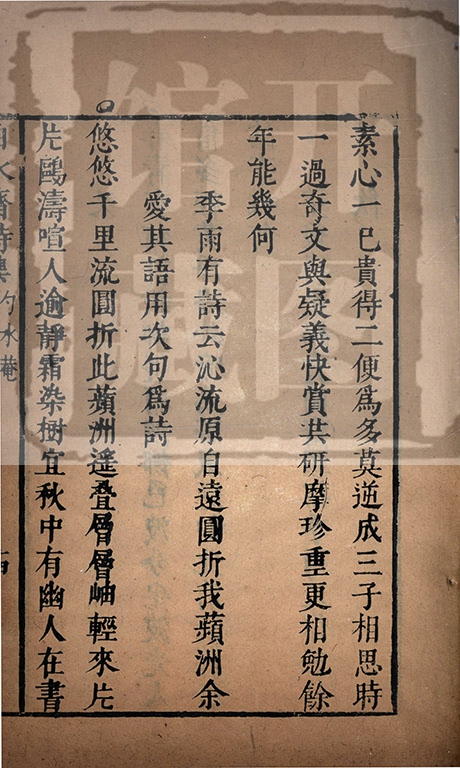 素心一已貴得二便爲多莫逆成三子相思時
一過奇文與疑義快賞共研摩珍重更相勉餘
年能幾何
季雨有詩云沁流原自遠圓折我蘋洲余
愛其語用次句爲詩
悠悠千里流圓折此蘋洲遙叠層層岫輕來片
片鷗濤喧人逾靜霜染樹宜秋中有幽人在書